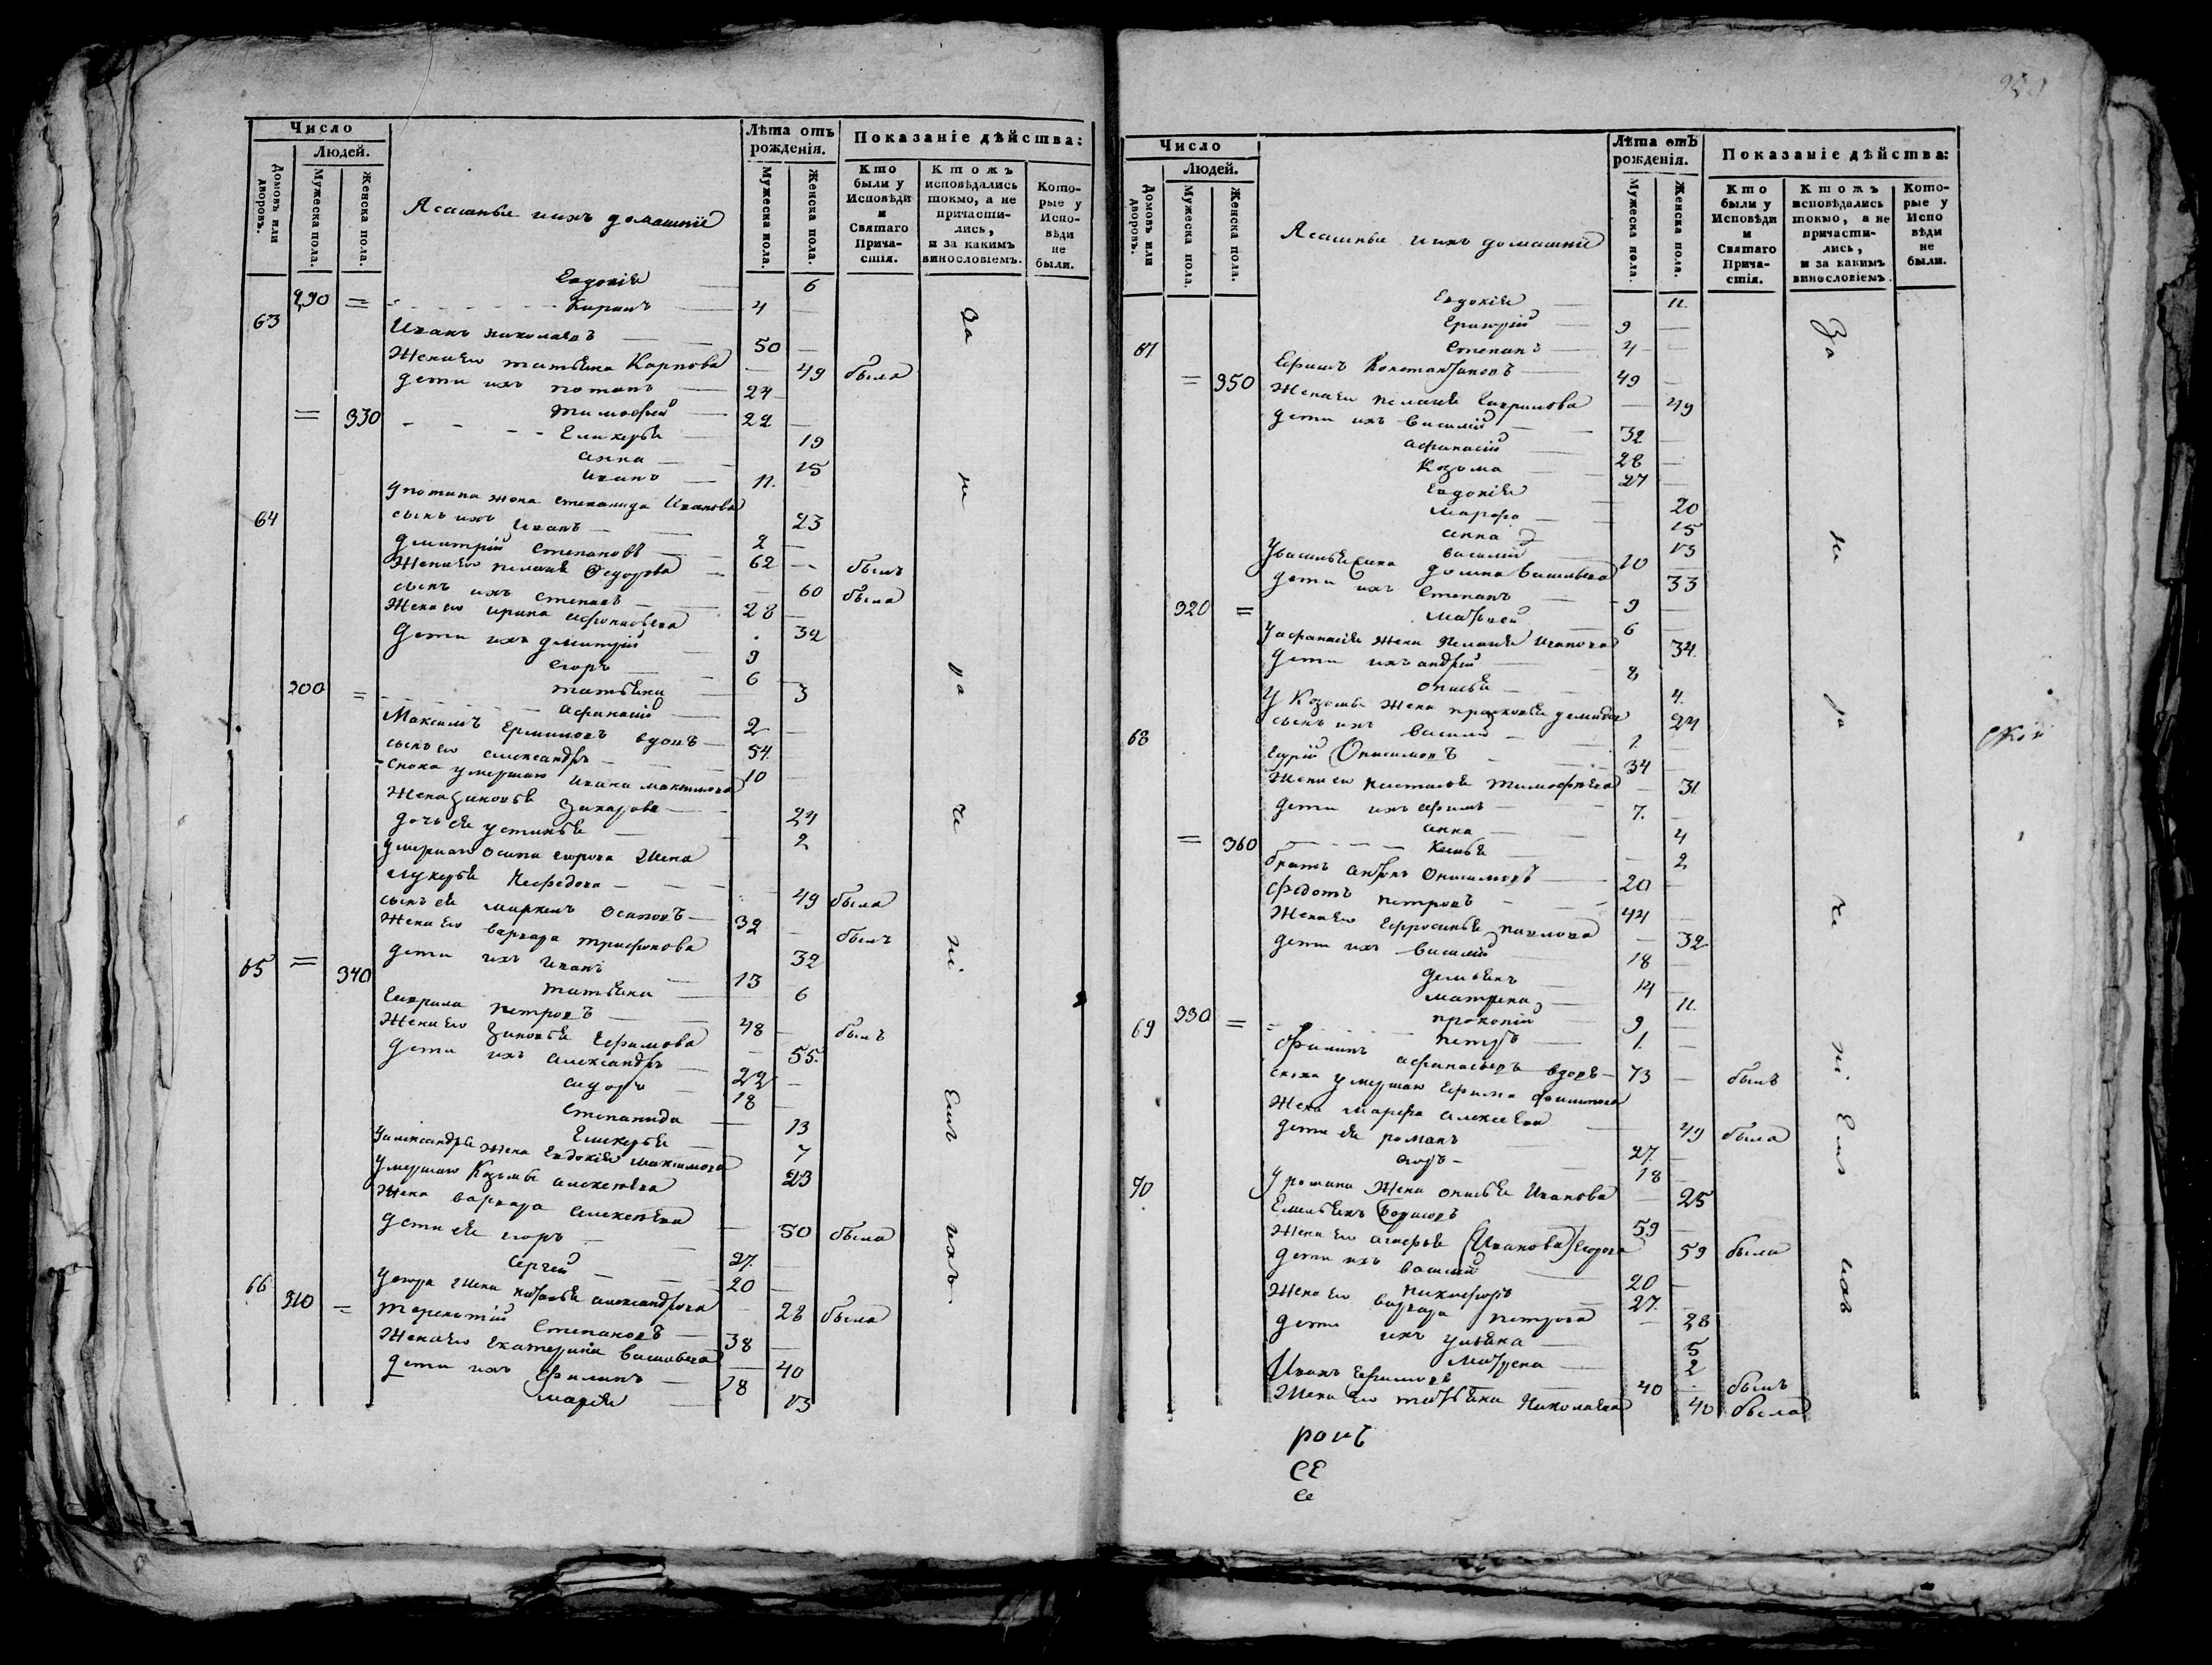 Число
Людей.
Домовъ или дворовъ.
Мужеска пола.
Женска пола.
Ясашные и ихъ домашніе
Лѣта отъ рожденія.
Мужеска пола.
Женска пола.
Показаніе дѣйства:
Кто были у Исповѣди и Святаго Причастія.
Ктожъ исповѣдались токмо, а не причастились, и за какимъ винословіемъ.
Которые у Исповѣди не были.
Евдокія 6
290 = Киранъ 4
63 Иванъ Николаевъ 50
Жена Его татьяна Карпова 49 была
дети ихъ потапъ 24
= 330 тимофей 22
Гликерья 19
анна 15
иванъ 11.
у потапа жена степанида Иванова 23
сынъ ихъ Иванъ 2
64 Дмитрій Степановъ 62 былъ
Жена Его пелагея Федорова 60 была
сынъ ихъ степанъ 28
Жена его ирина афонасьева 32
Дети ихъ дмитрій 9
егоръ 6
татьяна 3
300 = афанасій 2
Максимъ Ермиловъ вдовъ 54
сынъ его александръ 10
сноха умершаго ивана максимова
Жена зиновья Захарова 24
дочь ея устинья 2
умершаго осипа егорова Жена
лукерья Нефедова 49 была
сынъ ея маркелъ осиповъ 32 былъ
Жена Его варвара трифонова 32
дети ихъ иванъ 13
= 340 татьяна 6
65 Гаврила петровъ 48 былъ
Жена Его Зиновья Ефимова 55.
дети ихъ александръ 22
сидоръ 18
степанида 13
Гликерья 7
у александра Жена Евдокія максимова 23
умершаго Козьмы алексеева
Жена варвара алексеева 50 была
дети ея егоръ 27.
Сергей 20
у егора Жена наталья александрова 28 была
66 310 = терентій степановъ 38
Жена Его Екатерина васильева 40
дети ихъ Филипъ 18
марія 13
За не ра че ні Емъ ихъ.
Число
Людей.
Домовъ или дворовъ.
Мужеска пола.
Женска пола.
Ясашные и ихъ домашніе
Лѣта отЪ рожденія.
Мужеска пола.
Женска пола.
Показаніе дѣйства:
Кто были у Исповѣди и Святаго Причастія.
Ктожъ исповѣдались токмо, а не причастились, и за какимъ винословіемъ.
Которые у Исповѣди не были.
Евдокія 11.
Григорій 9
Степанъ 4
67 Ефимъ Константиновъ 49
= 350 Жена Его пелагея Гаврилова 49
дети ихъ василій 32
афанасій 28
Козьма 27
Евдокія 20
марфа 15
анна 13
василій 10
у василья Жена домна васильева 33
дети ихъ степанъ 9
320 = матвей 6
у афанасія Жена Пелагея Иванова 34.
дети ихъ андрей 8
онисья 4.
у Козьмы Жена прасковья демидова 24
сынъ ихъ василій 1.
68 Онисимовъ 34
Жена его настасья тимофеева 31.
дети ихъ ефимъ 7.
анна 4
= 360 Ксенья 2
братъ антонъ Онисимовъ 20
федотъ петровъ 44
Жена Его Ефросинья павлова 32
дети ихъ василій 18
демьянъ 14
матрена 11.
прокопій 9
330 = петръ 1.
69 Филипъ афанасьевъ вдовъ 73 былъ
сноха умершаго Ефима филипова
Жена марфа алексеева 49 была
дети ея романъ 27.
18
у романа Жена онисья Иванова 25
70 Емельянъ Борисовъ 59
Жена Его агафья (Иванова) Егорова 59 была
дети ихъ василій 20
никифоръ 27.
Жена Его варвара петрова 28
дети ихъ ульяна 5
матрена 2
Иванъ Ефимовъ 40 былъ
Жена Его татьяна Николаева 40 была
За не ра че ні Емъ ихъ
ской
ровъ
СЕ
се